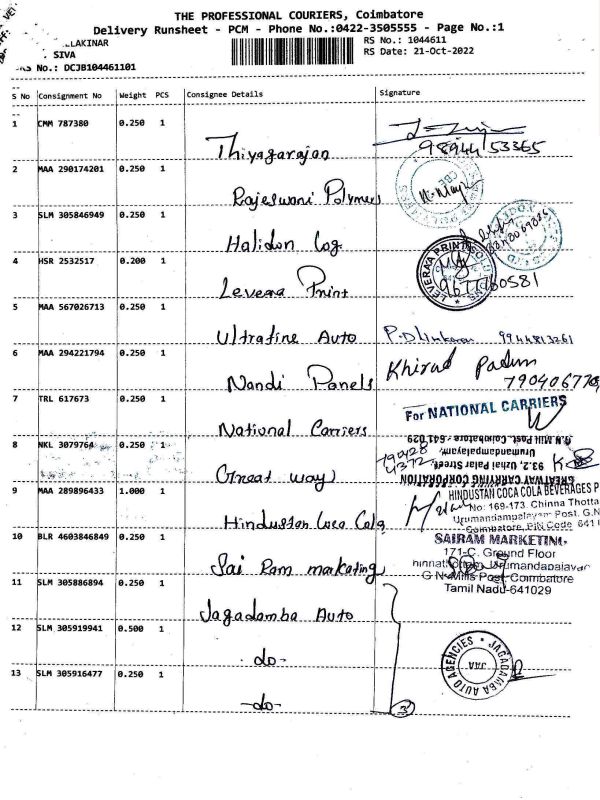 THE PROFESSIONAL COURIERS, Coimbatore
Delivery Runsheet - PCM - Phone No.:0422-3505555 - Page No.:1
RS No.: 1044611
SIVA RS Date: 21-Oct-2022
No.: DCJB104461101
S No Consignment No Weight PCS Consignee Details Signature
1 CMM 787380 0.250 1
Thiyagarajan 98944 53365
2 MAA 290174201 0.250 1
Rajeswari Polymers
3 SLM 305846949 0.250 1
Halidon Log
4 HSR 2532517 0.200 1
Levera Print 9677760581
LEVERAA PRINT SOLUTIONS
5 MAA 567026713 0.250 1
Ultrafine Auto 9944813261
6 MAA 294221794 0.250 1
Nandi Panels
7 TRL 617673 0.250 1
For NATIONAL CARRIERS
National Carriers
8 NKL 3079764 0.250 1
Great way
GREATWAY CARRYING CORPORATION
93.2, Uzhai Palar Street
Urumandampalayam,
G.N Mill Post, Coimbatore - 641 029
9 MAA 289896433 1.000 1
Hindustan Coca Cola
HINDUSTAN COCA COLA BEVERAGES P
No: 169-173, Chinna Thotta
Urumandampalayam Post, G.N
Coimbatore, PIN Code 641
10 BLR 4603846849 0.250 1
Sai Ram makating
SAIRAM MARKETING
171-C, Ground Floor
G N Mills Post Coimbatore
Tamil Nadu-641029
11 SLM 305886894 0.250 1
Jagadamba Auto
12 SLM 305919941 0.500 1
-do-
JAGADAMBA AUTO AGENCIES
JAA
13 SLM 305916477 0.250 1
-do- 3